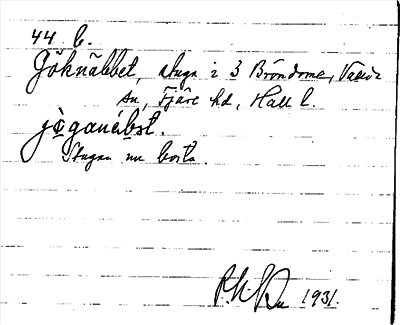 44 b.
Göknäbbet, stuga i 3 Bröndome, Valda
sn, Fjäre hd, Hall l.
jø̀ganébst.
Stugan nu borta.
1931.